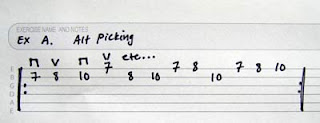 EXERCISE NAME AND NOTES
Ex A. Alt Picking
⊓ V ⊓ V etc...
7 8 10 7 8 10 7 8 10 7 8 10
E
B
G
D
A
E